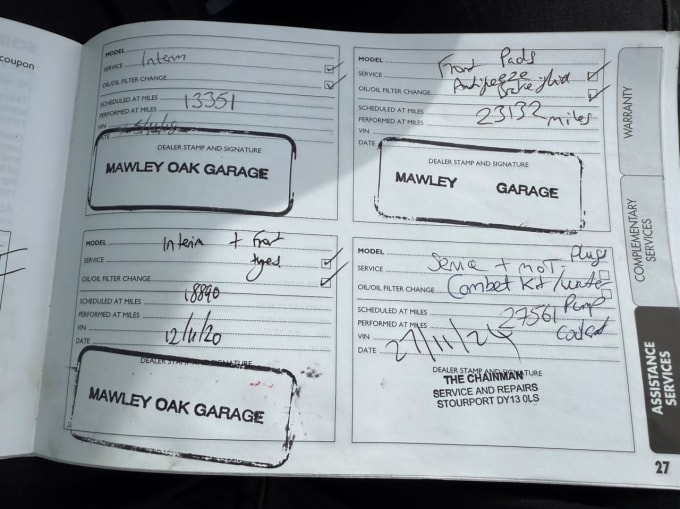 coupon
MODEL
SERVICE Interim
OIL/OIL FILTER CHANGE
SCHEDULED AT MILES 13351
PERFORMED AT MILES
VIN
DATE
DEALER STAMP AND SIGNATURE
MAWLEY OAK GARAGE
MODEL Front Pads
SERVICE Antifreeze
OIL/OIL FILTER CHANGE Brake fluid
SCHEDULED AT MILES 23132 miles
PERFORMED AT MILES
VIN
DATE
DEALER STAMP AND SIGNATURE
MAWLEY GARAGE
MODEL Interim + Front
SERVICE tyres
OIL/OIL FILTER CHANGE
SCHEDULED AT MILES 18890
PERFORMED AT MILES
VIN 12/11/20
DATE
DEALER STAMP AND SIGNATURE
MAWLEY OAK GARAGE
MODEL Plugs
SERVICE Service + MOT,
OIL/OIL FILTER CHANGE Cambet Kit/water
SCHEDULED AT MILES 27561 Pump
PERFORMED AT MILES coolant
VIN
DATE 27/11/24
DEALER STAMP AND SIGNATURE
THE CHAINMAN
SERVICE AND REPAIRS
STOURPORT DY13 0LS
WARRANTY
COMPLEMENTARY SERVICES
ASSISTANCE SERVICES
27